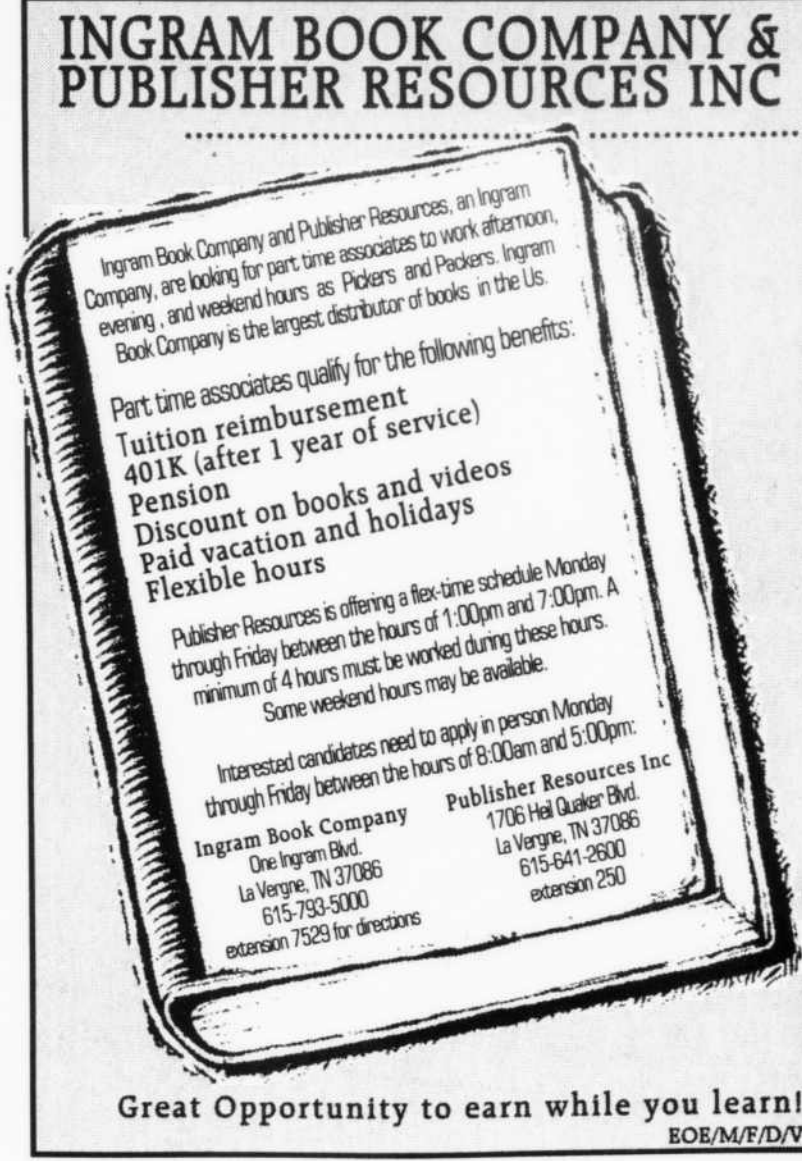 INGRAM BOOK COMPANY &
PUBLISHER RESOURCES INC
Ingram Book Company and Publisher Resources, an Ingram
Company, are looking for part time associates to work afternoon,
evening , and weekend hours as Pickers and Packers. Ingram
Book Company is the largest distributor of books in the Us.
Part time associates qualify for the following benefits:
Tuition reimbursement
401K (after 1 year of service)
Pension
Discount on books and videos
Paid vacation and holidays
Flexible hours
Publisher Resources is offering a flex-time schedule Monday
through Friday between the hours of 1:00pm and 7:00pm. A
minimum of 4 hours must be worked during these hours.
Some weekend hours may be available.
Interested candidates need to apply in person Monday
through Friday between the hours of 8:00am and 5:00pm:
Ingram Book Company
One Ingram Blvd.
La Vergne, TN 37086
615-793-5000
extension 7529 for directions
Publisher Resources Inc
1706 Heil Quaker Blvd.
La Vergne, TN 37086
615-641-2600
extension 250
Great Opportunity to earn while you learn!
EOE/M/F/D/V